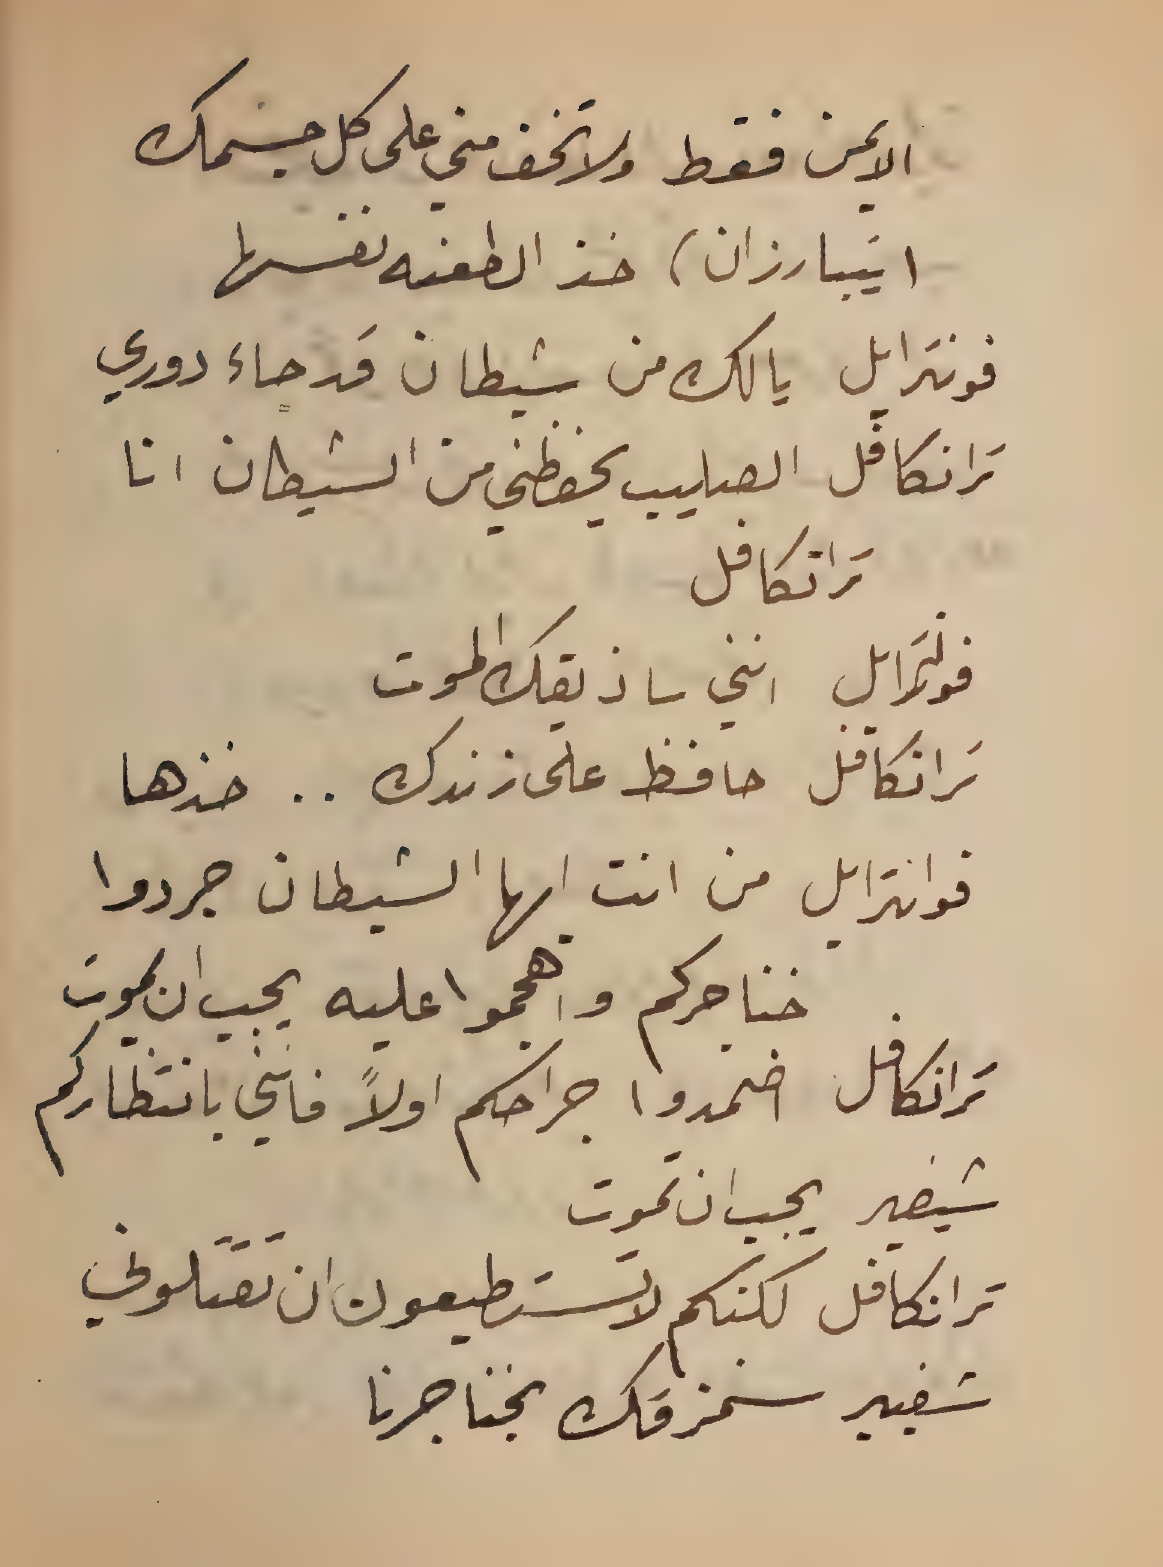 الايمن فقط ولا تخف مني على كل جسمك
( يتبارزان ) خذ الطعنه نفسها
فونترايل يالك من شيطان قد جاء دوري
ترانكافل الصليب يحفظني من الشيطان انا
ترانكافل
فونترايل انني ساذيقك الموت
ترانكافل حافظ على زندك .. خذها
فوانترايل من انت ايها الشيطان جردوا
خناجركم واهجموا عليه يجب ان يموت
ترانكافل اضمدوا جراحكم اولاً فانني بانتظاركم
شيفير يجب ان تموت
ترانكافل لكنكم لا تستطيعون ان تقتلوني
شفيير سنمزقك بخناجرنا